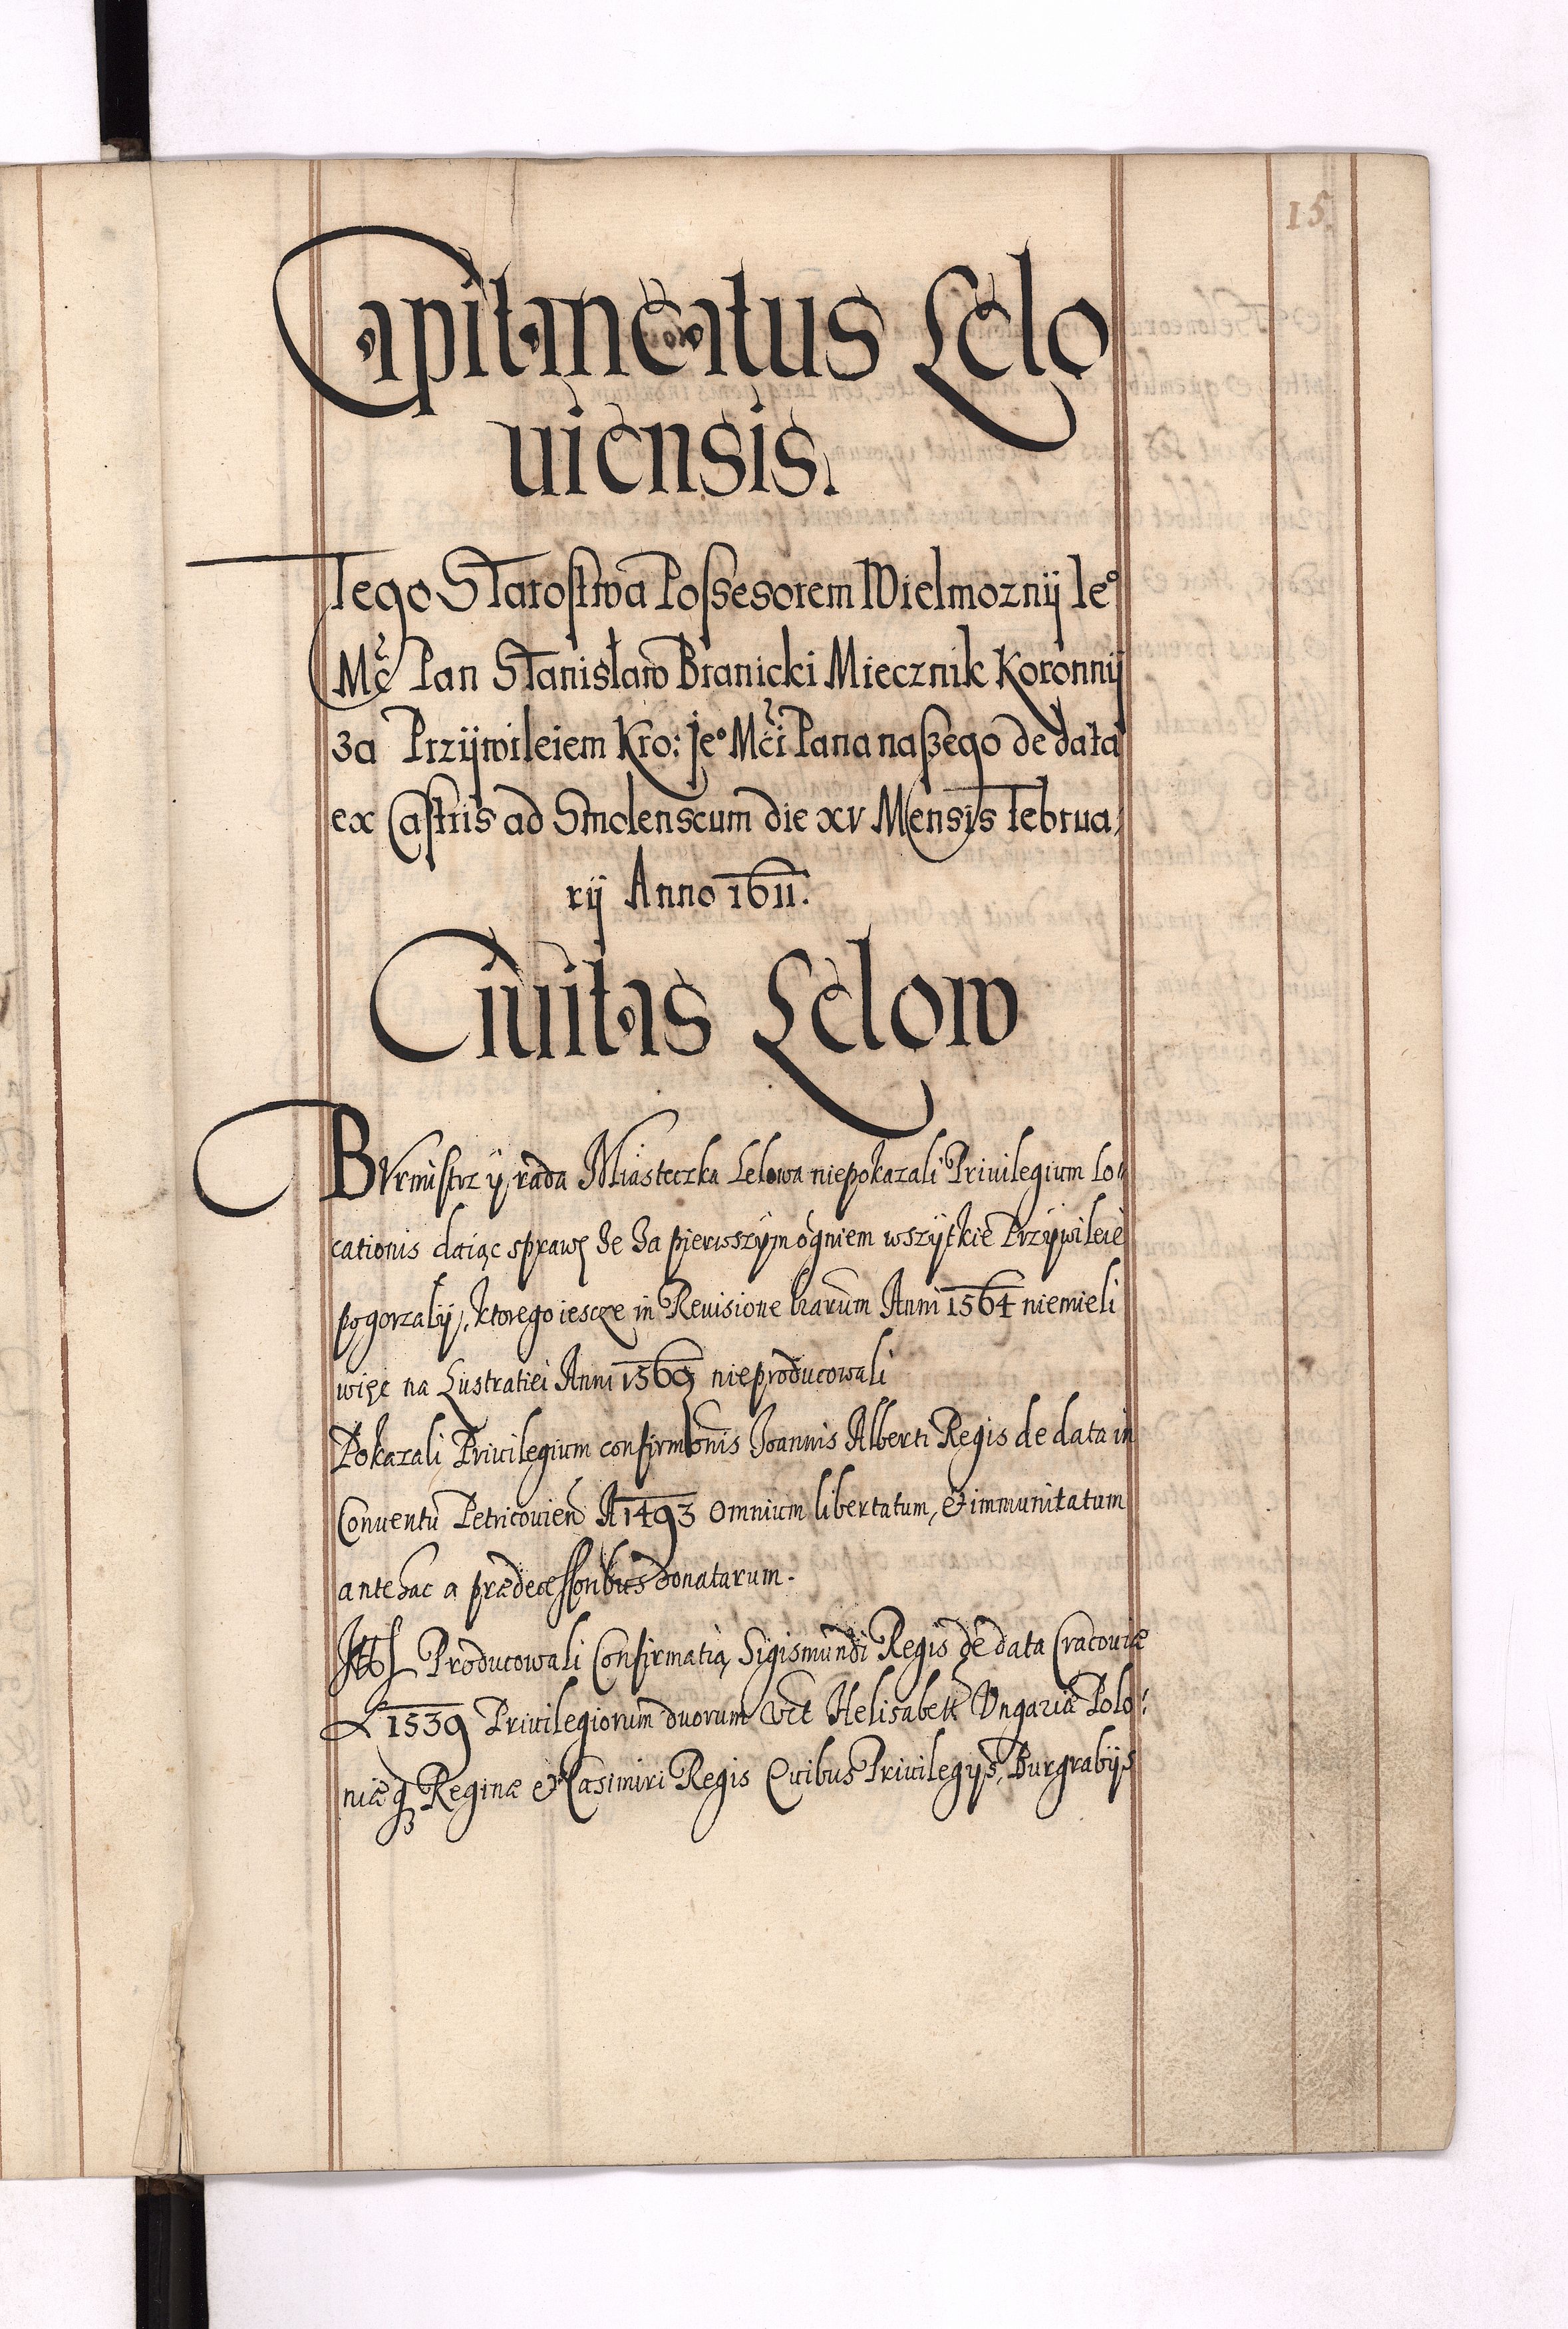 15.
Capitaneatus Lelo
uiensis.
Tego Starostwa Possesorem Wielmoznÿ Ieº
Mć Pan Stanisław Branicki Miecznik Koronnÿ
za Przÿwileiem Kro: jeº Mći Pana naszego de data
ex Castris ad Smolenscum die xv Mensis Februa,
rÿ Anno 1611.
Ciuitas Lelow
BVrmistrz ÿ rada Miasteczka Lelowa niepokazali Priuilegium lo:
cationis daiąc sprawę że za pierwszÿm ogniem wszÿtkie Przÿwileie
pogorzałÿ, ktorego iescze in Reuisione harum Anni 1564 niemieli
więc na Lustratiei Anni 1569 nieproducowali
Pokazali Priuilegium confirmõnis Joannis Alberti Regis de data in
Conuentu Petricouien A 1493 omnium libertatum, et immunitatum
antehac a prædecessoribus donatarum.
Producowali Confirmatią Sigismundi Regis de data Cracouiæ
A 1539 Priuilegiorum duorum vct Helisabeth Vngariæ Polo:
niæq3 Reginæ et Casimiri Regis Ciuibus Priuilegÿs, Burgrabÿs